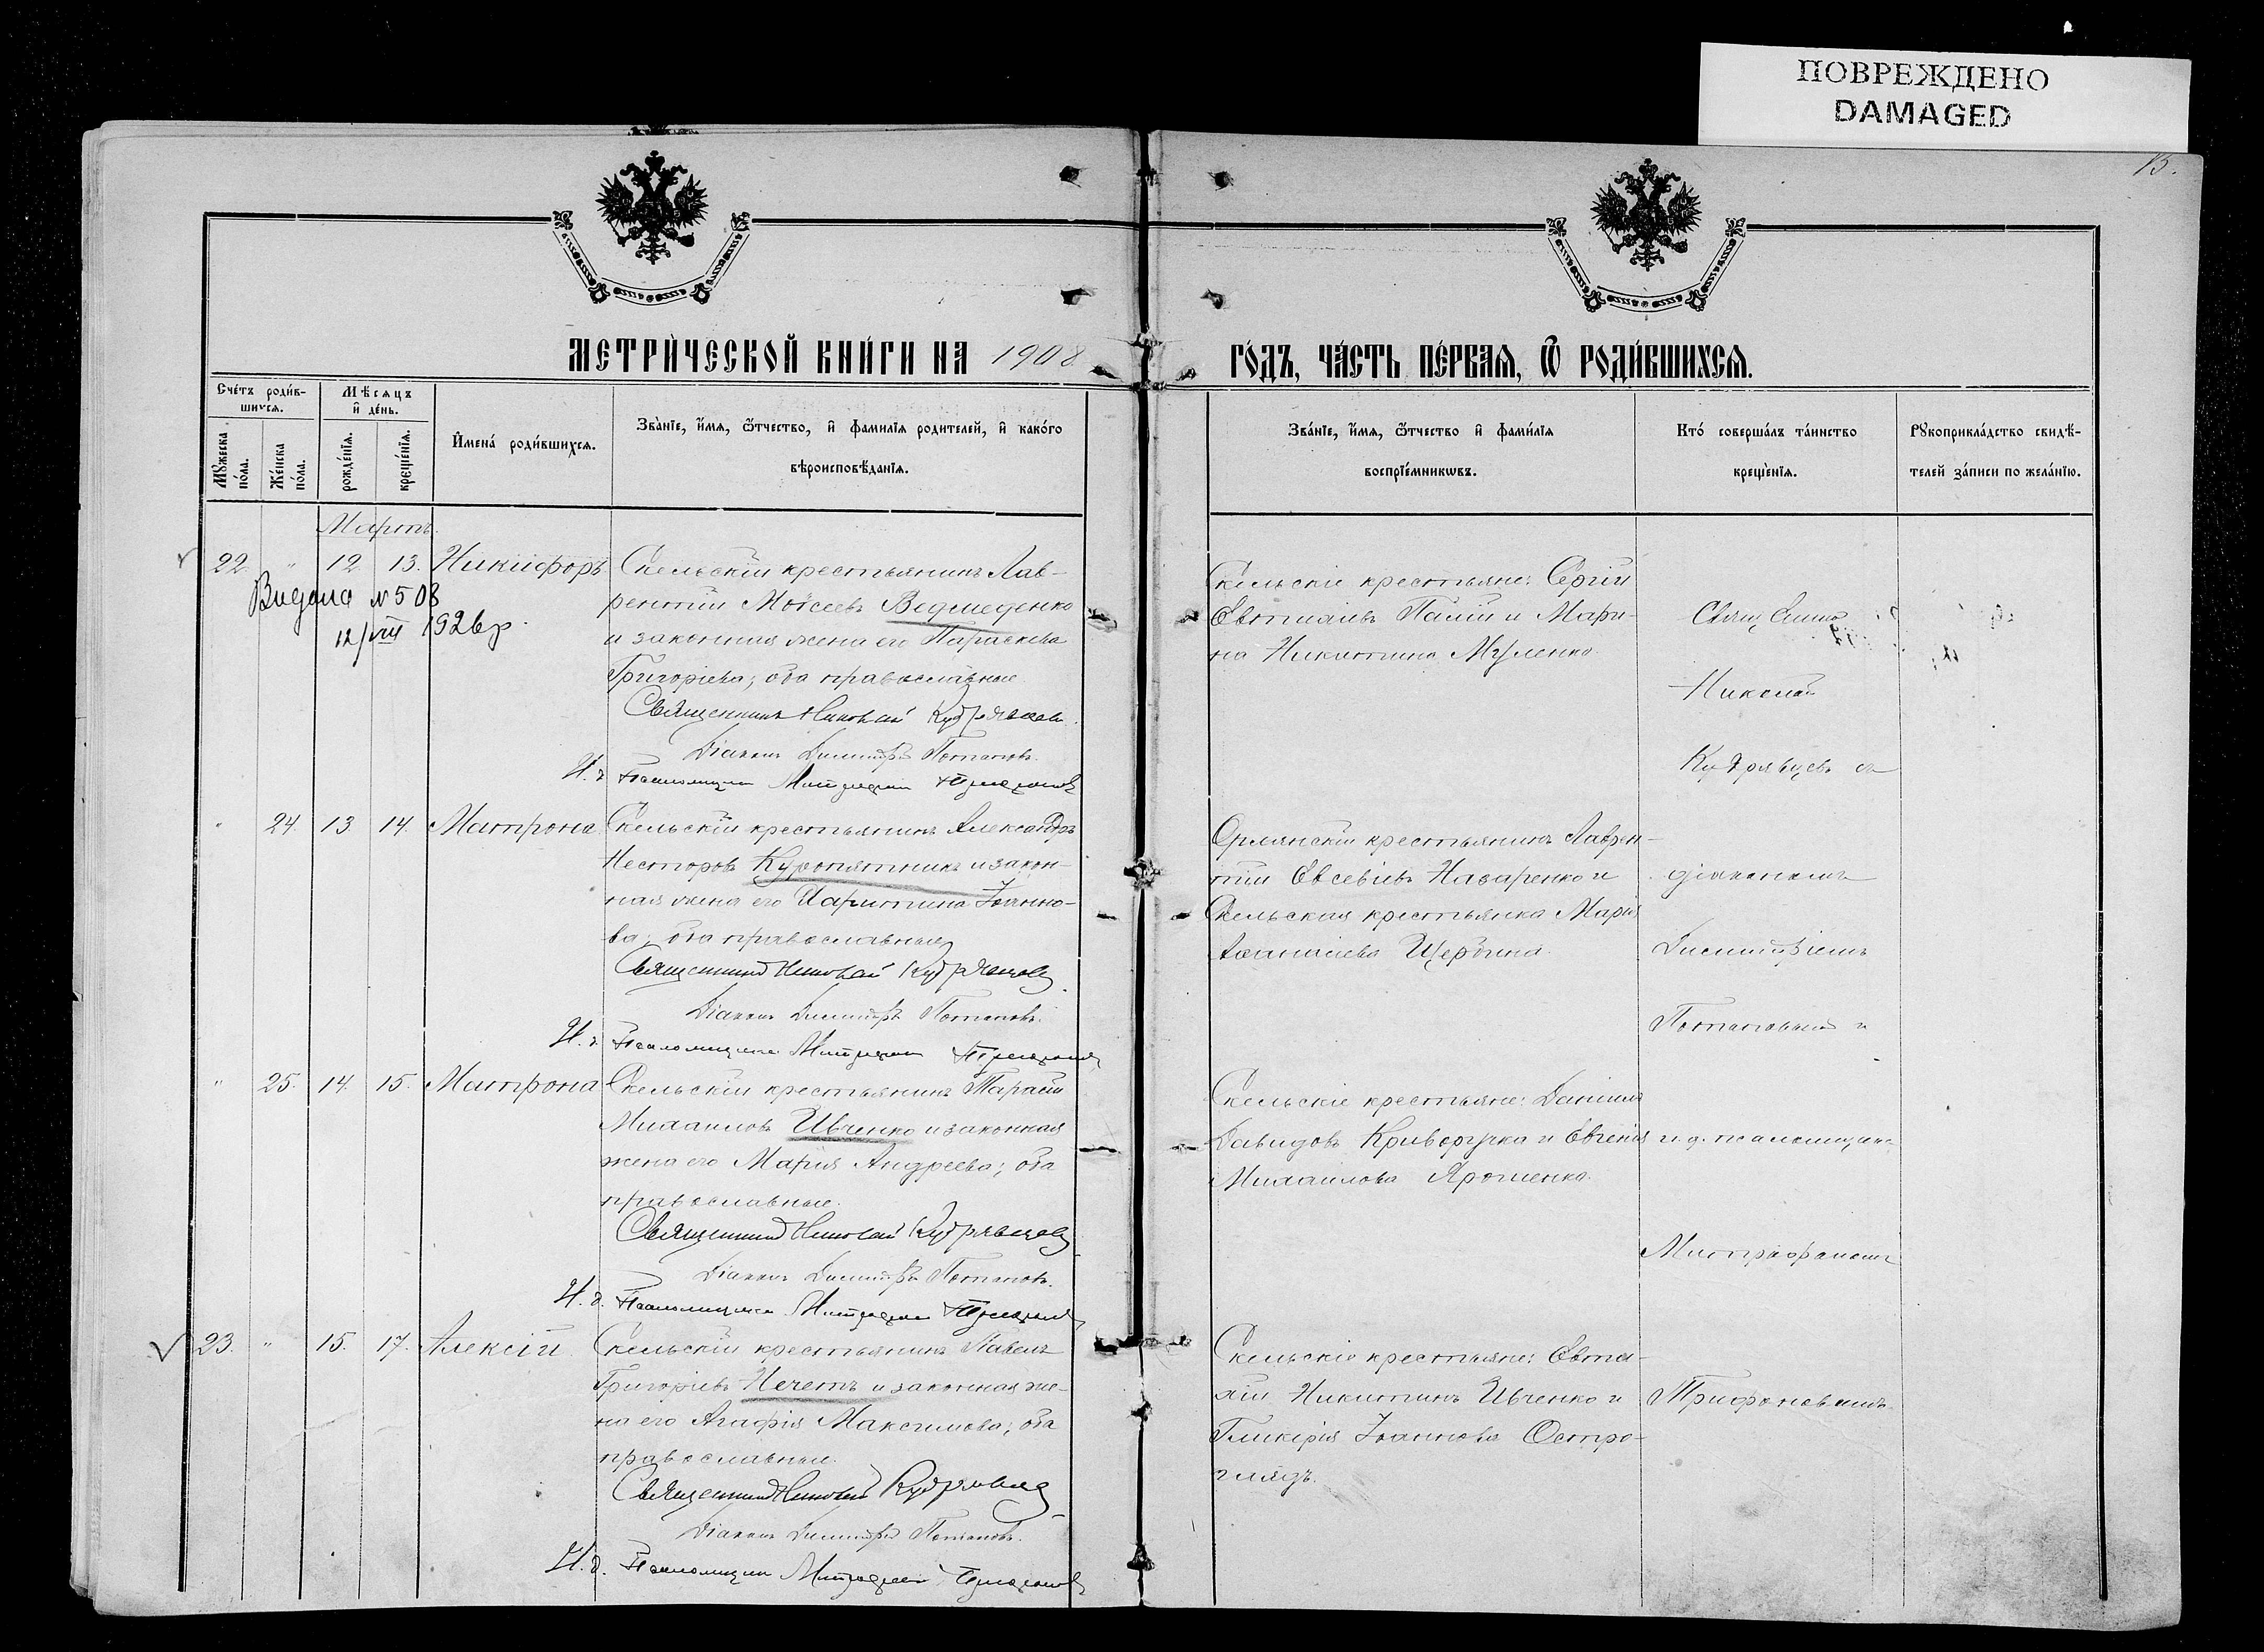 ПОВРЕЖДЕНО
DAMAGED
15.
МЕТРИ́ЧЕСКОЙ КНИ́ГИ НА 1908
ГО́ДЪ, ЧА́СТЬ ПЕ́РВАѦ, Ѿ РОДИ́ВШИХСѦ.
Сче́тъ роди́в-
шихся.
Мѣсяцъ
и̂ де́нь.
Му́жеска по́ла.
Же́нска по́ла.
рожде́нїѧ.
креще́нїѧ.
И̂мена́ роди́вшихся.
Зва̀нїе, и́мѧ, ѻ́тчество, и̂ фами́лїѧ родителей, и̂ како́го
вѣроисповѣ́данїѧ.
Зва́нїе, и́мѧ, ѻ́тчество и̂ фами́лїѧ
воспрїе́мникѡвъ.
Кто́ соверша́лъ та́инство
креще́нїѧ.
Рꙋкоприкла́дство свидѣ́-
телей за́писи по жела́нїю.
Мартъ.
22. " 12 13. Никифоръ
Скельскій крестьянинъ Лав-
рентій Моисеевъ Ведмеденко
и законная жена его Параскева
Григоріева; оба православные
Священникъ Николай Кудрявцевъ.
Діаконъ Димитрій Потаповъ.
И. д. Псаломщика Митрофанъ Трифоновъ
Видана №508
12/VIII 1926р.
Скельскіе крестьяне: Сергій
Евтихіевъ Палій и Мари-
на Никитина Муленко.
Священникъ
Николай
Кудрявцевъ съ
" 24. 13 14. Матрона
Скельскій крестьянинъ Александръ
Несторовъ Куропятникъ и закон-
ная жена его Харитина Іоанно-
ва; оба православные
Священникъ Николай Кудрявцевъ.
Діаконъ Димитрій Потаповъ.
И. д. Псаломщика Митрофанъ Трифоновъ
Орлянскій крестьянинъ Лаврен-
тій Евсевіевъ Назаренко и
Скельская крестьянка Марія
Аѳанасіева Щербина.
діакономъ
Димитріемъ
Потаповымъ и
" 25. 14. 15. Матрона
Скельскій крестьянинъ Тарасій
Михаиловъ Ивченко и законная
жена его Марія Андреева; оба
православные.
Священникъ Николай Кудрявцевъ
Діаконъ Димитрій Потаповъ.
И. д. Псаломщика Митрофанъ Трифоновъ
Скельскіе крестьяне: Даніилъ
Давидовъ Криворучка и Евгенія
Михаилова Ярошенко.
и. д. псаломщика
Митрофаномъ
23. " 15. 17. Алексій
Скельскій крестьянинъ Павелъ
Григоріевъ Нечетъ и законная же-
на его Агафія Максимова; оба
православные.
Священникъ Николай Кудрявцевъ
Діаконъ Димитрій Потаповъ.
И. д. Псаломщика Митрофанъ Трифоновъ
Никитинъ Ивченко и
Гликерія Іоаннова Остро-
глядъ.
Трифоновымъ